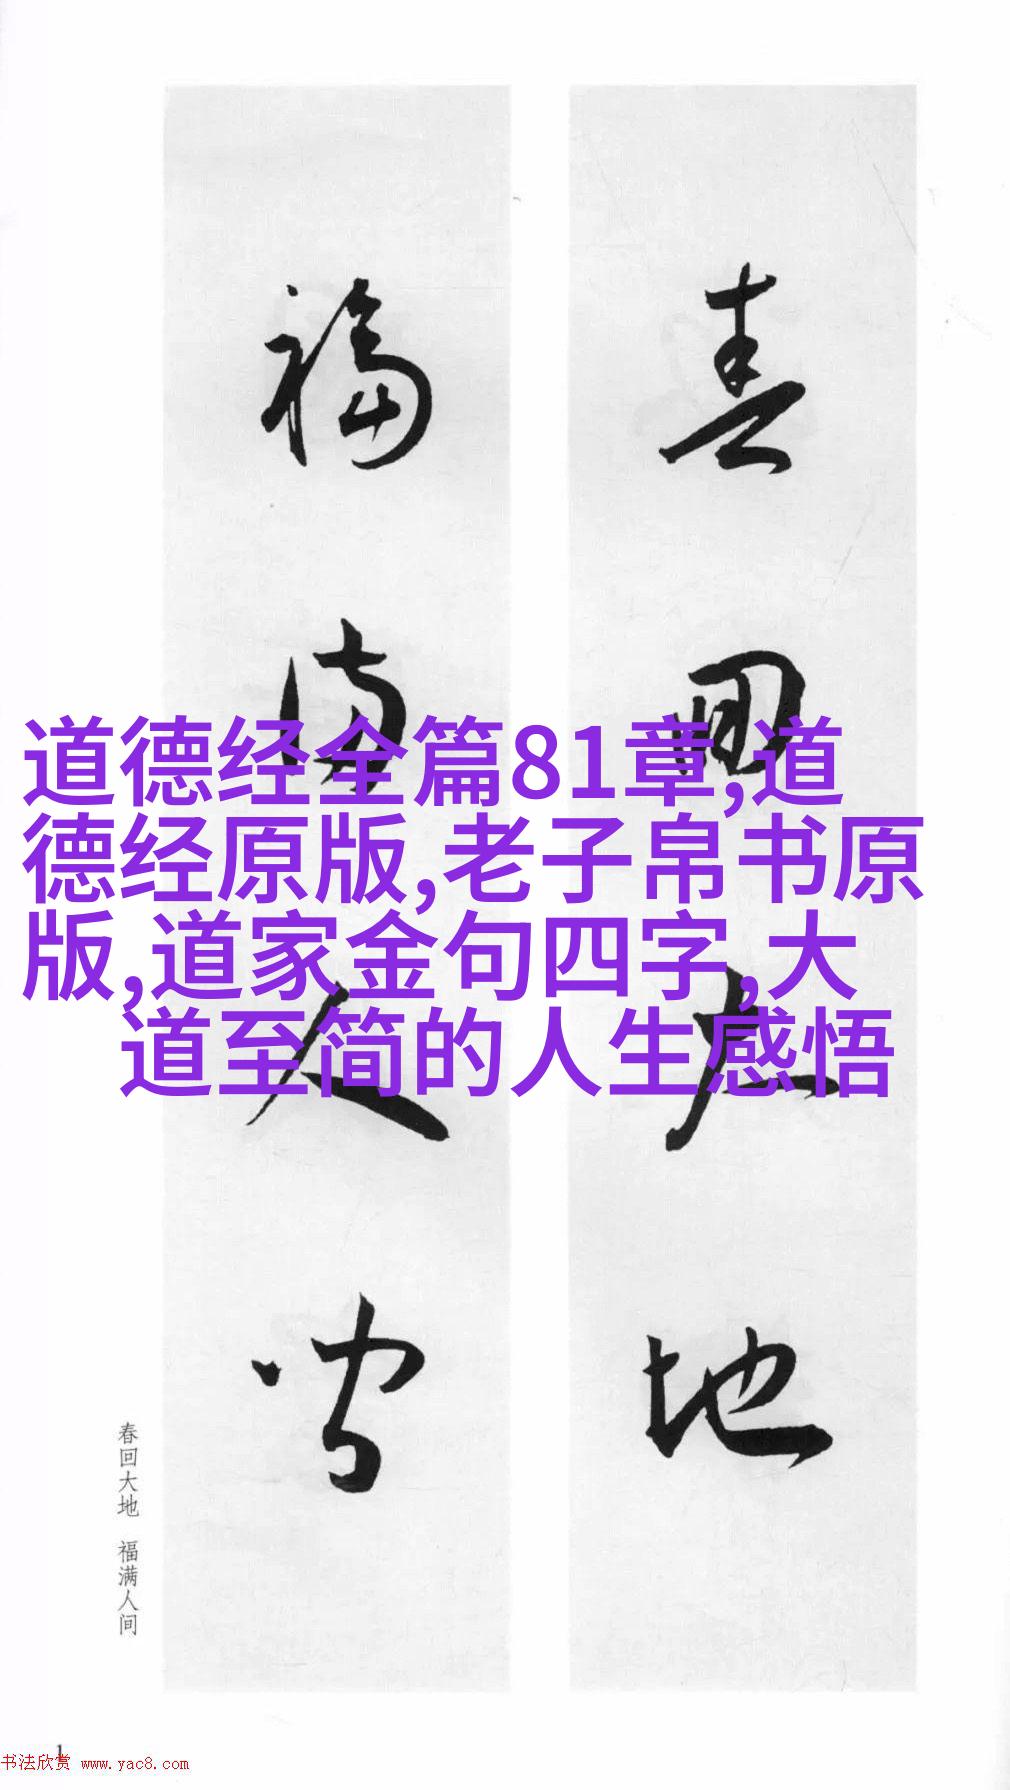 春回大地
福满人间
道德经全篇81章,道
德经原版,老子帛书原
版,道家金句四字,大
道至简的人生感悟
春回大地 福满人间
1
书法欣赏 www.yac8.com